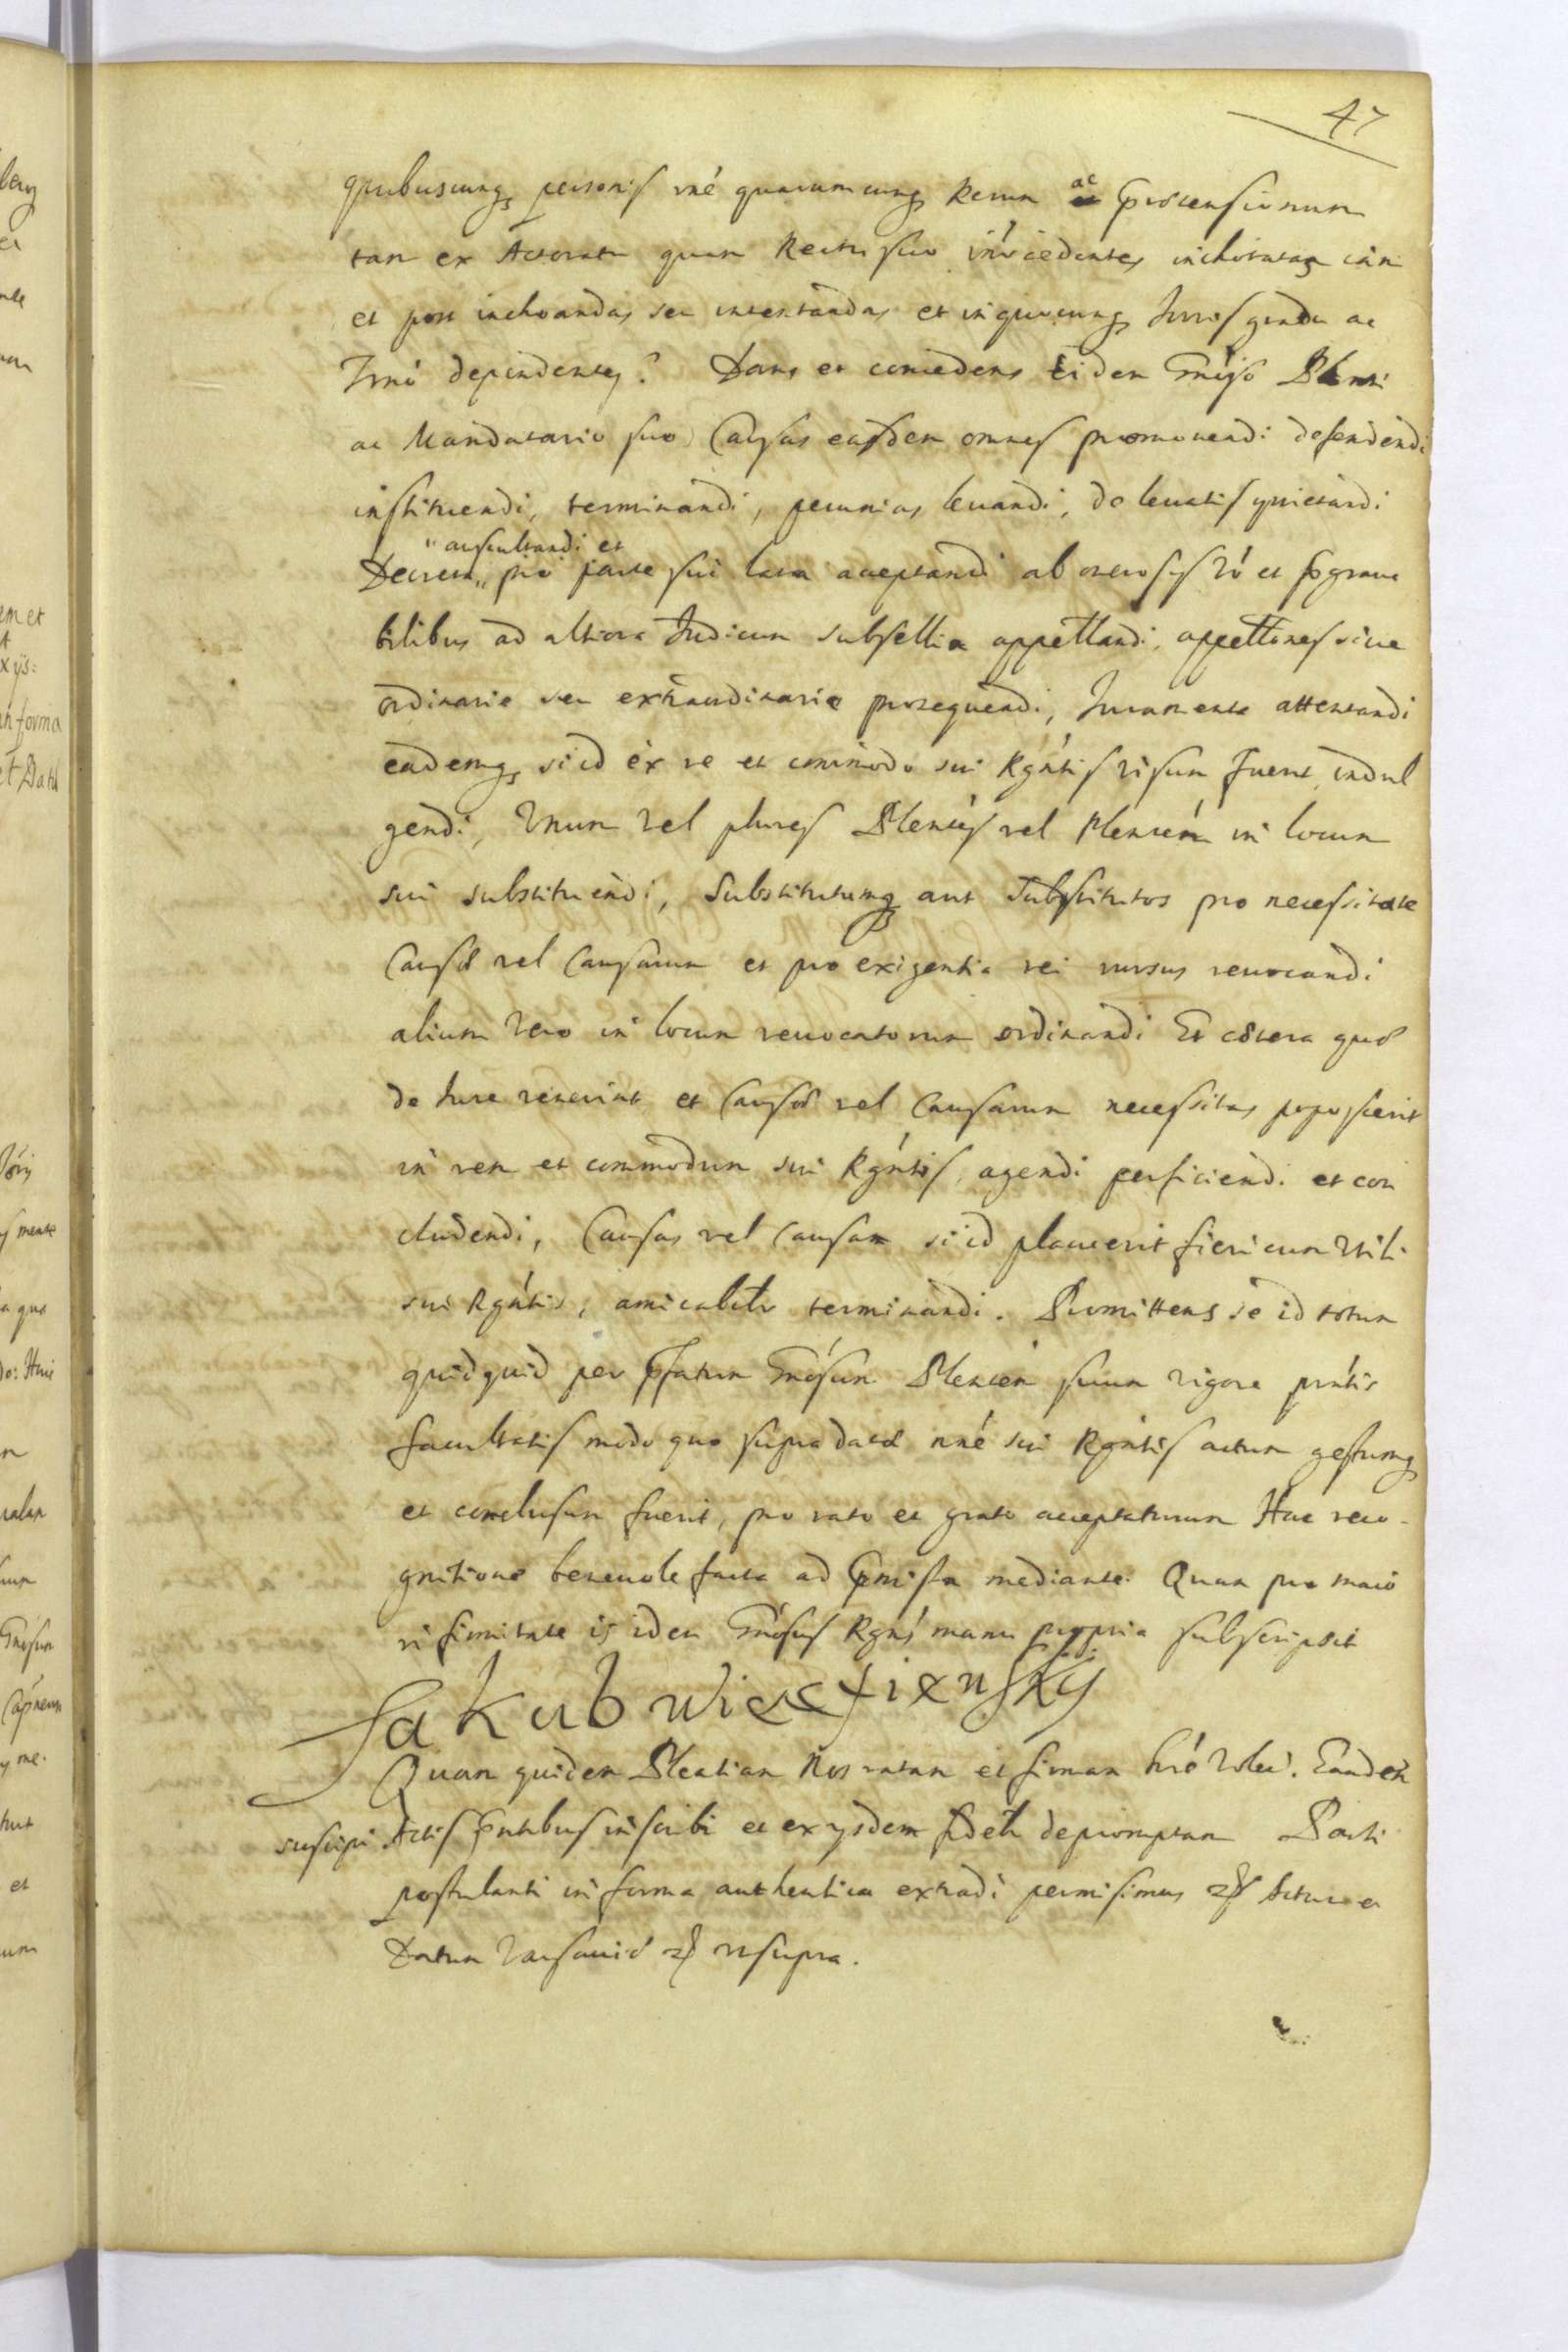 47
quibuscunq personis rné quarumcunq Rerum ac prætensionum
tam ex Actoratu quam Reatu suo procedentes inchoatas iam
et post inchoandas seu intentandas et in quocunq Juris gradu ac
Trno dependentes. Dans et concedens Eidem Gnoso Plenti
ac Mandatario suo Causas easdem omnes promovendi defendendi
instituendi, terminandi, pecunias levandi, de levatis quietandi
auscultandi et
Decreta pro parte sui lata acceptandi ab onerosis ró et pgrava
bilibus ad altiora Judicum subsellia appellandi, appellones sive
ordinarie seu extraordinarie prosequendi, Juramenta attentandi
eademq si id ex re et commodo sui Rgntis visum fuerit indul
gendi, Unum vel plures Plentes vel Plentem in locum
sui substituendi, Substitutumq aut Substitutos pro necessitate
Causæ vel Causarum et pro exigentia rei rursus revocandi
alium vero in locum revocatorum ordinandi Et cætera quæ
de Jure venerint et Causæ vel Causarum necessitas poposcerit
in rem et commodum sui Rgntis, agendi perficiendi et con
cludendi, Causas vel Causam si id placuerit fieri cum Utili
sui Rgntis, amicabilr terminandi. Promittens se id totum
quidquid per pfatum Gnosum Plentem suum vigore pntis
facultatis modo quo supra datæ nné sui Rgntis actum gestumq
et conclusum fuerit, pro rato et grato accepturum Hac reco-
gnitione benevole facta ad pmissa mediante. Quam pro maio
ri firmitate is idem Gnosus Rgns manu propria subscripsit
Jakub
Quam quidem Pleatiam Nos ratam et firmam hré volen. Eandem
suscipi Actis pntibus inscribi et ex ysdem fidelr depromptam Parti
postulanti in forma authentica extradi permisimus Actum et
Datum Varsaviæ ut supra.